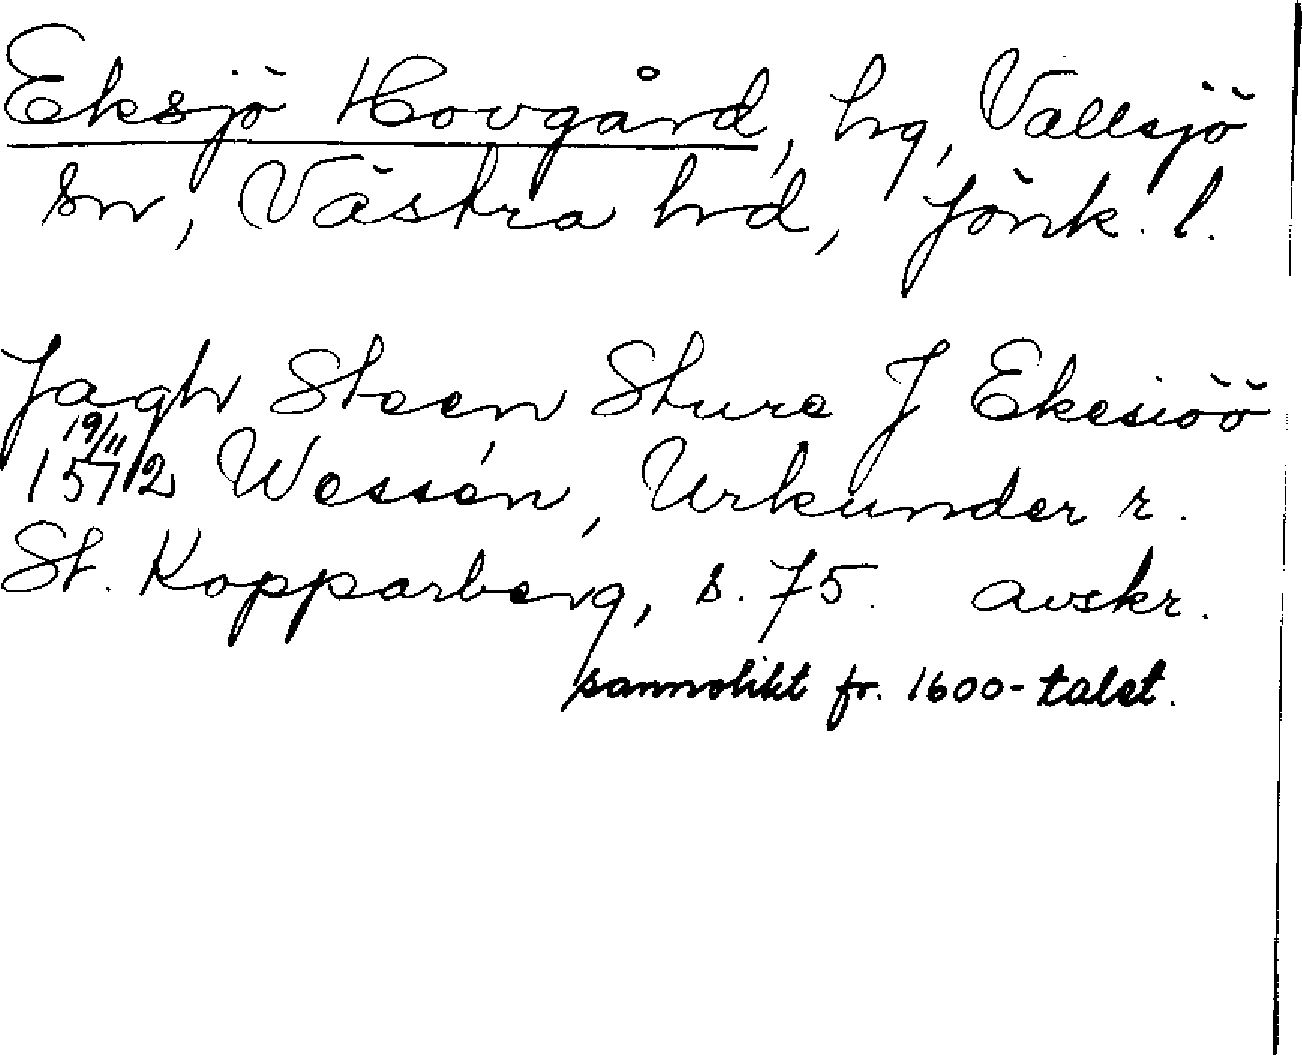 Eksjö Hovgård, hg, Vallsjö
sn, Västra hd, Jönk. l.
Jagh Steen Sture J Ekesiöö
19/11
1572 Wessén, Urkunder r.
St. Kopparberg, s. 75. avskr.
sannolikt fr. 1600-talet.